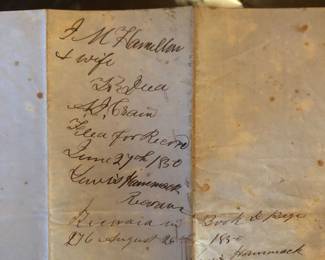 J M Hamilton
& wife
To Deed
A J Crain
Filed for Record
June 27th 1850
Lewis Hammack
Recorder
Recorded in
276 August 26th
Book D page
1850
Hammack